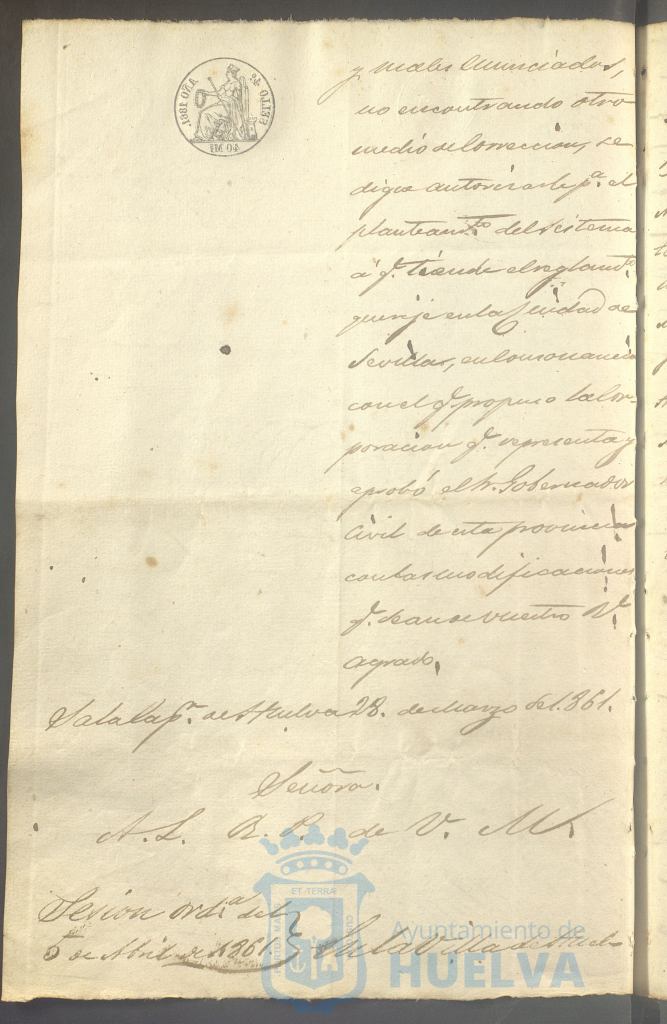 AÑO 1861.
SELLO 4º
40 Ms
y males enunciados,
no encontrando otro
medio de correccion, se
digne autorizarle pª. el
planteamto. del sistema
á q. tiende el reglamto.
que rije en la Ciudad de
Sevilla, en consonancia
con el q. propuso la Cor-
poracion q. representa y
aprobó el Sr. Gobernador
Civil de esta provincia
con las modificaciones
q. sean de vuestro Rl.
agrado.
Sala Capr. de Huelva 28. de Marzo de 1.861.
Señora.
A. L. R. P. de V. M.
Sesion ordiª. del
5 de Abril de 1861. } En la Villa de Huel-
ET TERRÆ
Ayuntamiento de
HUELVA